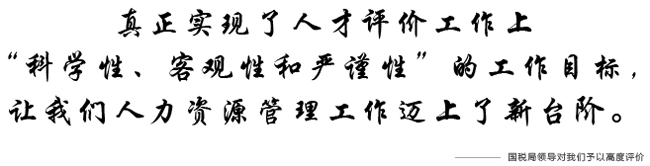 真正实现了人才评价工作上
“科学性、客观性和严谨性”的工作目标，
让我们人力资源管理工作迈上了新台阶。
——— 国税局领导对我们予以高度评价